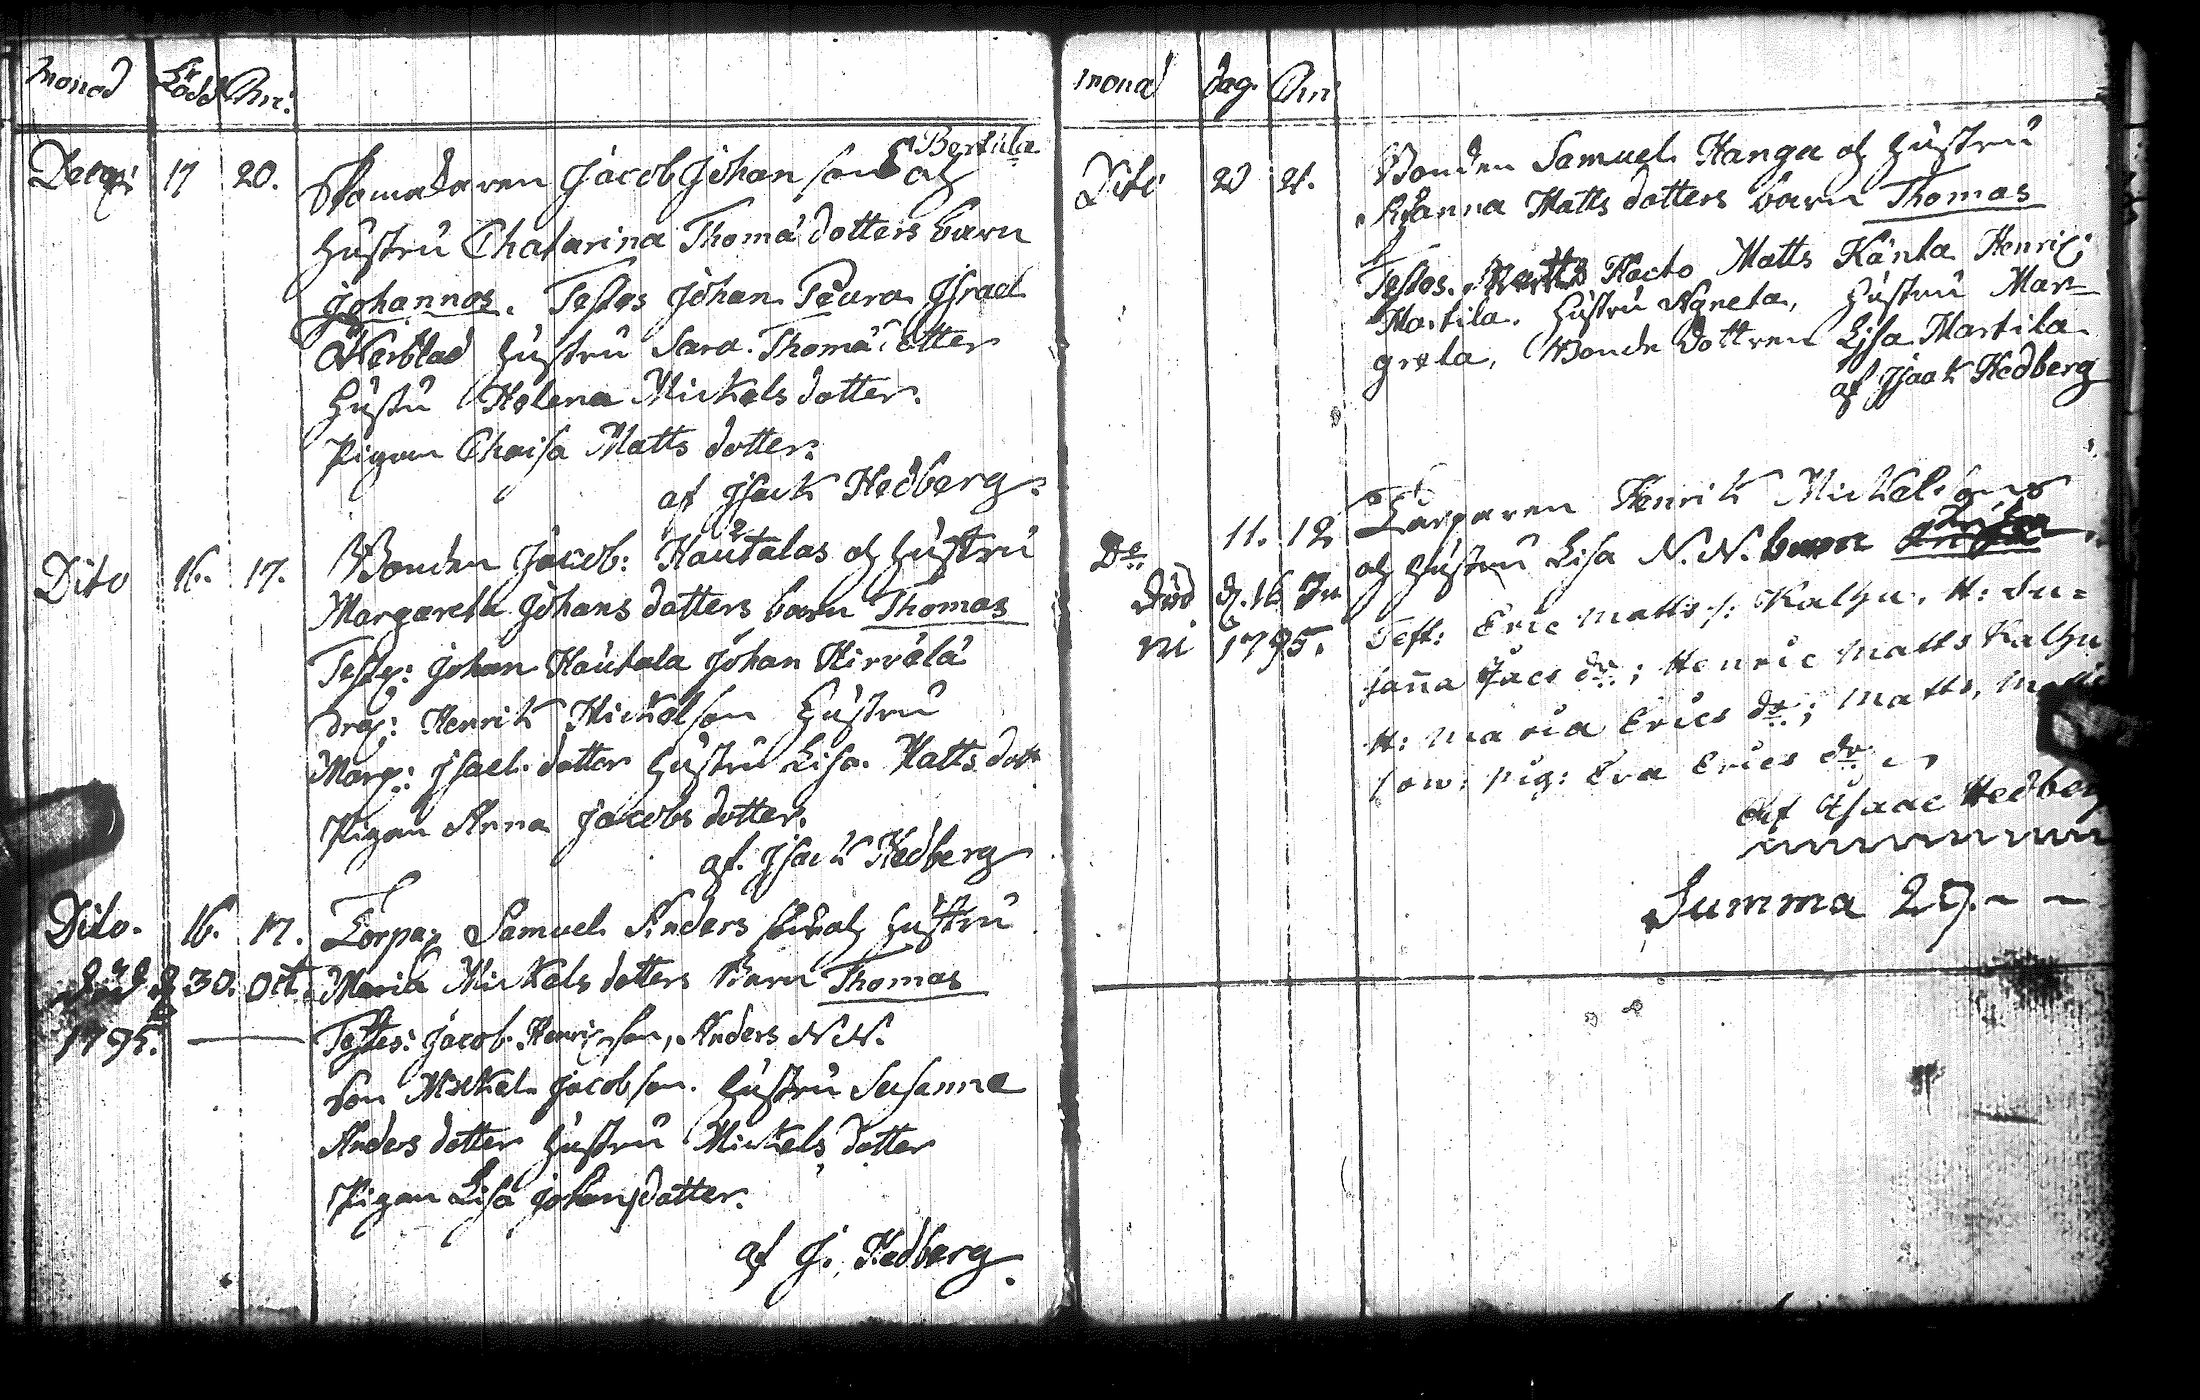 Monad Född Chr:
Decemr 17 20. Skomakaren Jacob Johan sons Bertula och
hustru Chatarina Thomæ dotters barn
Johannes. Testes Johan Peura Jsrael
Åkerblad hustru Sara Thomæ dotter
Hustru Helena Mickels dotter.
Pigan Chaisa Matts dotter.
af Jsack Hedberg.
Dito 16. 17. Bonden Jacob: Hautalas och hustru
Margareta Johans dotters barn Thomas
Testes: Johan Hautala Johan Hirvelä
Dreng: Henrik Mickelson Hustru
Marg: Jsael dotter hustru Lisa Matts dott
Pigan Anna Jacobs dotter.
af. Jsack Hedberg
Dito. 16. 17. Torpar Samuel Anders son och hustru
död d 30. Oct. Maria Mickels dotters Barn Thomas
1795. Testes: Jacob Henricson, Anders N.N.
Son Mickel Jacobson. hustru Susanna
Anders dotter hustru Mickels dotter
Pigan Lisa Johans dotter.
af J. Hedberg.
monad dag. Chr
Dito 20 21. Bonden Samuel Kanga och hustru
Susanna Matts dotters barn Thomas
Testes. Kacto Matts Känta Henric
Martila. Hustru Agneta, hustru Mar=
greta, Bonde Dottren Lisa Martila
af Jsaak Hedberg
Do 11. 12 Torparen Henrik Mickelsons
och hustru Lisa N.N. barn
död d. 16 Ju Test: Eric Matts s: Kalhu, H: Su=
ni 1795. sanna Jacs dr; Henric Matts Kalhu
H: Maria Erics dr; Matts, Matts
son: pig: Eva Erics dr
Af Jsaac Hedberg
Summa 29.